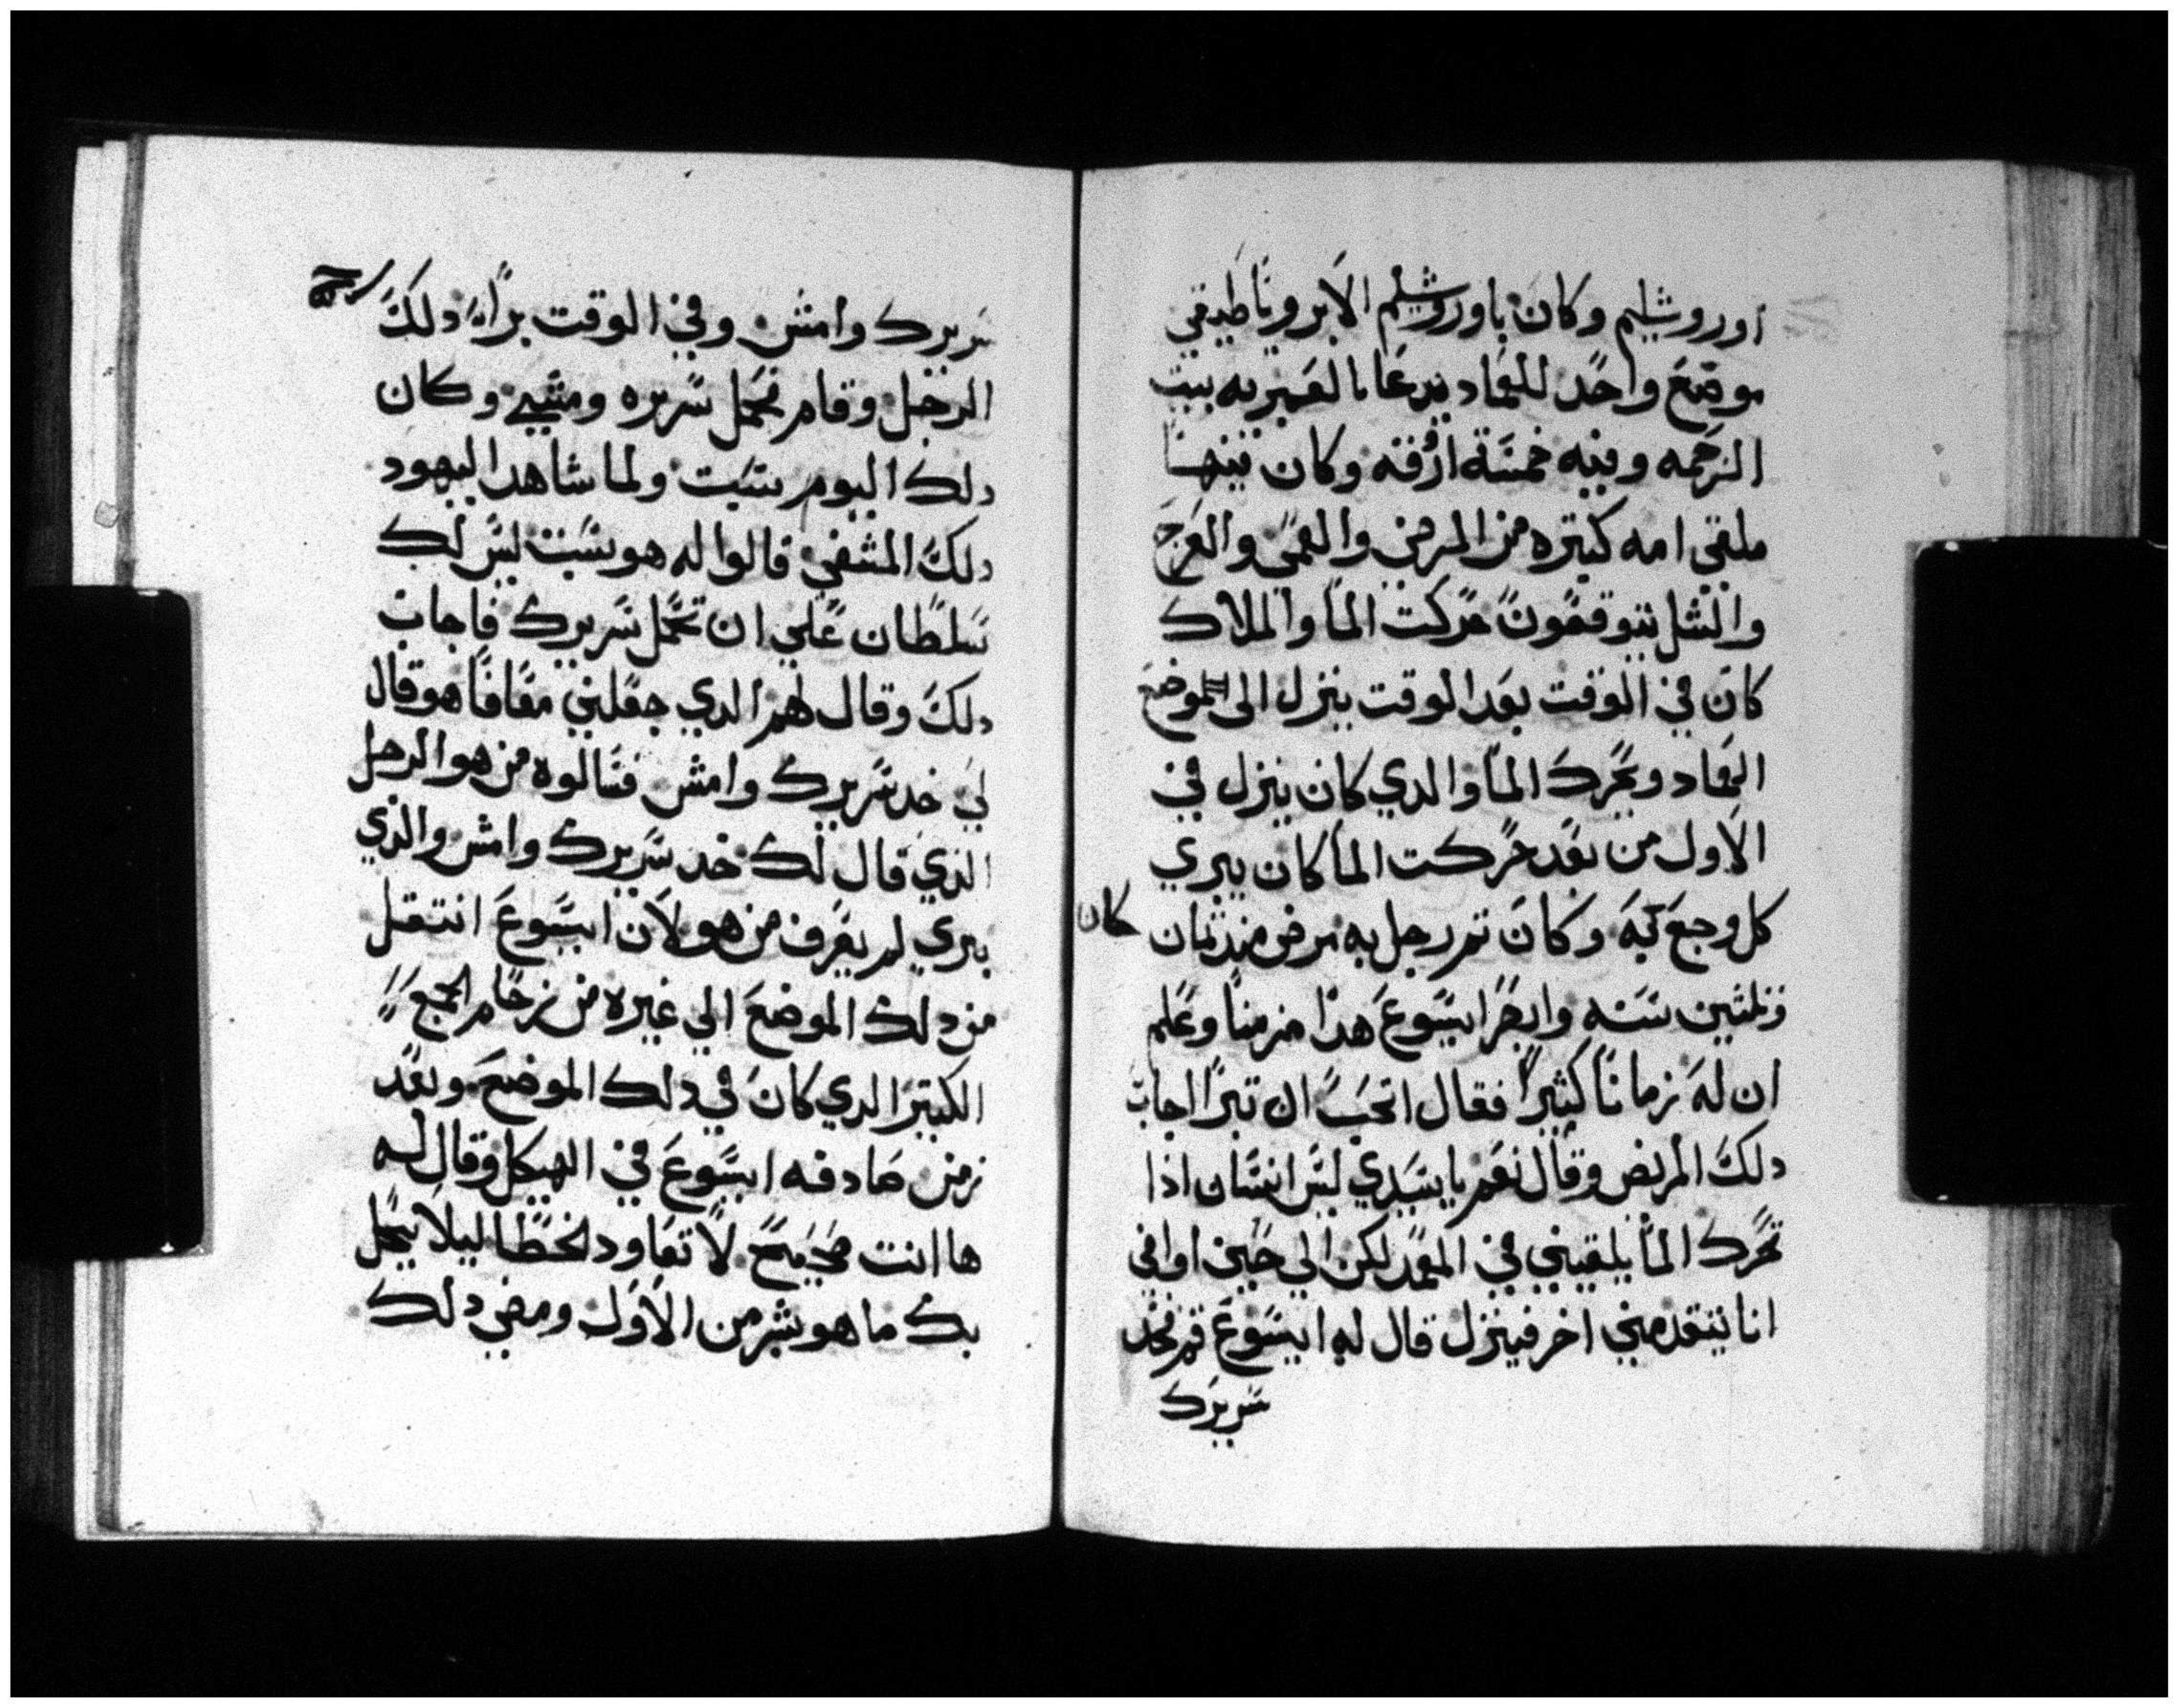 اوروشليم وكان باوروشليم الابروباطيقي
موضع واحد للعماد يدعا بالعبريه بيت
الرحمه وفيه خمسة ازقه وكان فيها
ملقي امه كتيره من المرضي والعمي والعرج
والشل يتوقعون حركت الما والملاك
كان في الوقت بعد الوقت ينزل الى الموضع
العماد ويحرك الما والدي كان ينزل في
الاول من بعد حركت الما كان يبري
كل وجع به وكان تم رجل به مرض مند تمان
كان
وثلثين سنه وابصر ايسوع هدا مزمنا وعلم
ان له زمانا كثيرا فقال اتحب ان تبرا اجاب
دلك المريض وقال نعم يا سيدي ليس انسان ادا
تحرك الما يلقيني في المعمد لكن الي حين اوافي
انا يتقدمني اخر فينزل قال له ايسوع قم خد
سريرك
سريرك وامش وفي الوقت برا دلك
الرجل وقام حمل سريره ومشي وكان
دلك اليوم سبت ولما شاهد اليهود
دلك المشفي قالوا له هو سبت ليس لك
سلطان علي ان تحمل سريرك فاجاب
دلك وقال لهم الدي جعلني معافا هو قال
لي خد سريرك وامش فسالوه من هو الرجل
الذي قال لك خد سريرك وامش والذي
بري لم يعرف من هو لان ايسوع انتقل
من دلك الموضع الي غيره من زحام الجمع
الكتير الدي كان في دلك الموضع وبعد
زمن صادفه ايسوع في الهيكل وقال له
ها انت صحيح لا تعاود الخطا ليلا يحل
بك ما هو بشر من الاول ومضي دلك